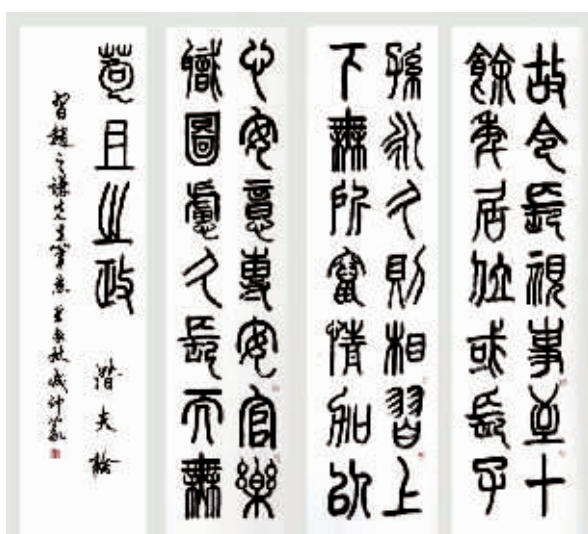 故令長視事至十
餘年居位或長子
孫永久則相習上
下無所竄情加以
心安意專安官樂
職圖慮久長而無
苟且之政 潛夫論
習趙之謙先生筆意